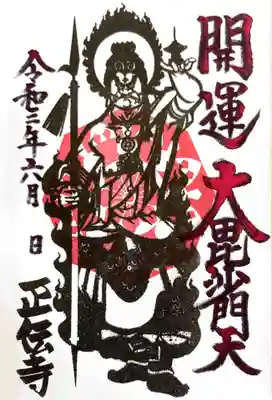 開運
大毘沙門天
令和二年六月 日
正伝寺